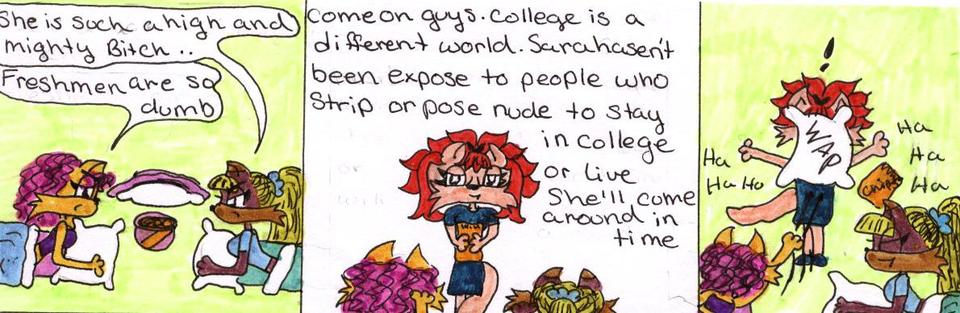 She is such a high and
mighty Bitch ..
Freshmen are so
dumb
Come on guys. College is a
different world. Sarahasen't
been expose to people who
Strip or pose nude to stay
in college
or live
She'll come
around in
time
!
WAP
Ha
Ha Ha
Ha
Ha
Ha
Chips